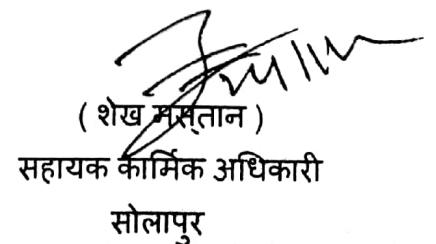 ( शेख मस्तान )
सहायक कार्मिक अधिकारी
सोलापुर